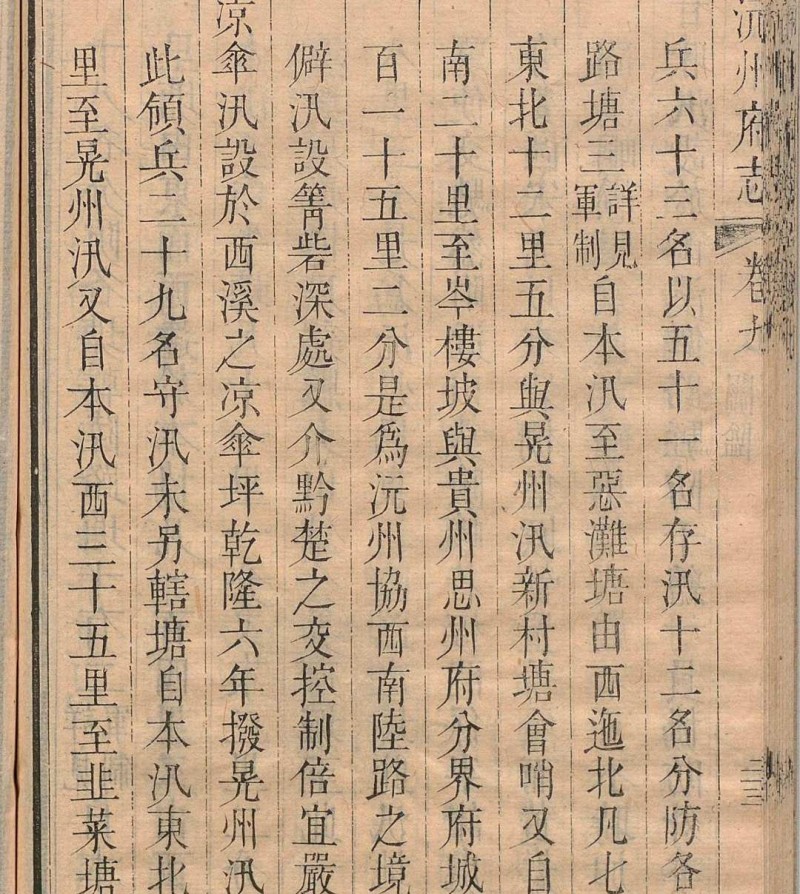 沅州府志 卷九
兵六十三名以五十一名存汛十二名分防各
路塘三詳見軍制自本汛至惡灘塘由西迤北凡七
東北十二里五分與晃州汛新村塘會哨又自
南二十里至岑樓坡與貴州思州府分界府城
百一十五里二分是爲沅州協西南陸路之境
僻汛設箐砦深處又介黔楚之交控制倍宜嚴
凉傘汛設於西溪之凉傘坪乾隆六年撥晃州汛
此領兵二十九名守汛未另轄塘自本汛東北
里至晃州汛又自本汛西三十五里至韭菜塘